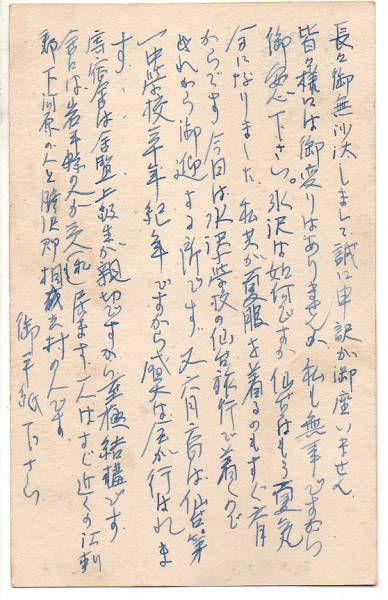 長々御無沙汰しまして誠に申訳が御座いません
皆々様には御変りはありませんか、私も無事ですから
御安心下さい。水沢は如何ですか 仙台はもう夏気
分になりました 私共が夏服を着るのもすぐ六月
からです 今日は水沢学校の仙台旅行で着くので
これから御迎する所です。又六月 は仙台第
一中学校三十年紀年ですから盛大は会が行はれま
す、
寄宿舎は舎監上級生が親切ですから至極結構です
舎には岩手縣の人が二人 居ます 一人はすぐ近くの江刺
郡下河原の人と胆沢郡相去村の人です。
御手紙下さい